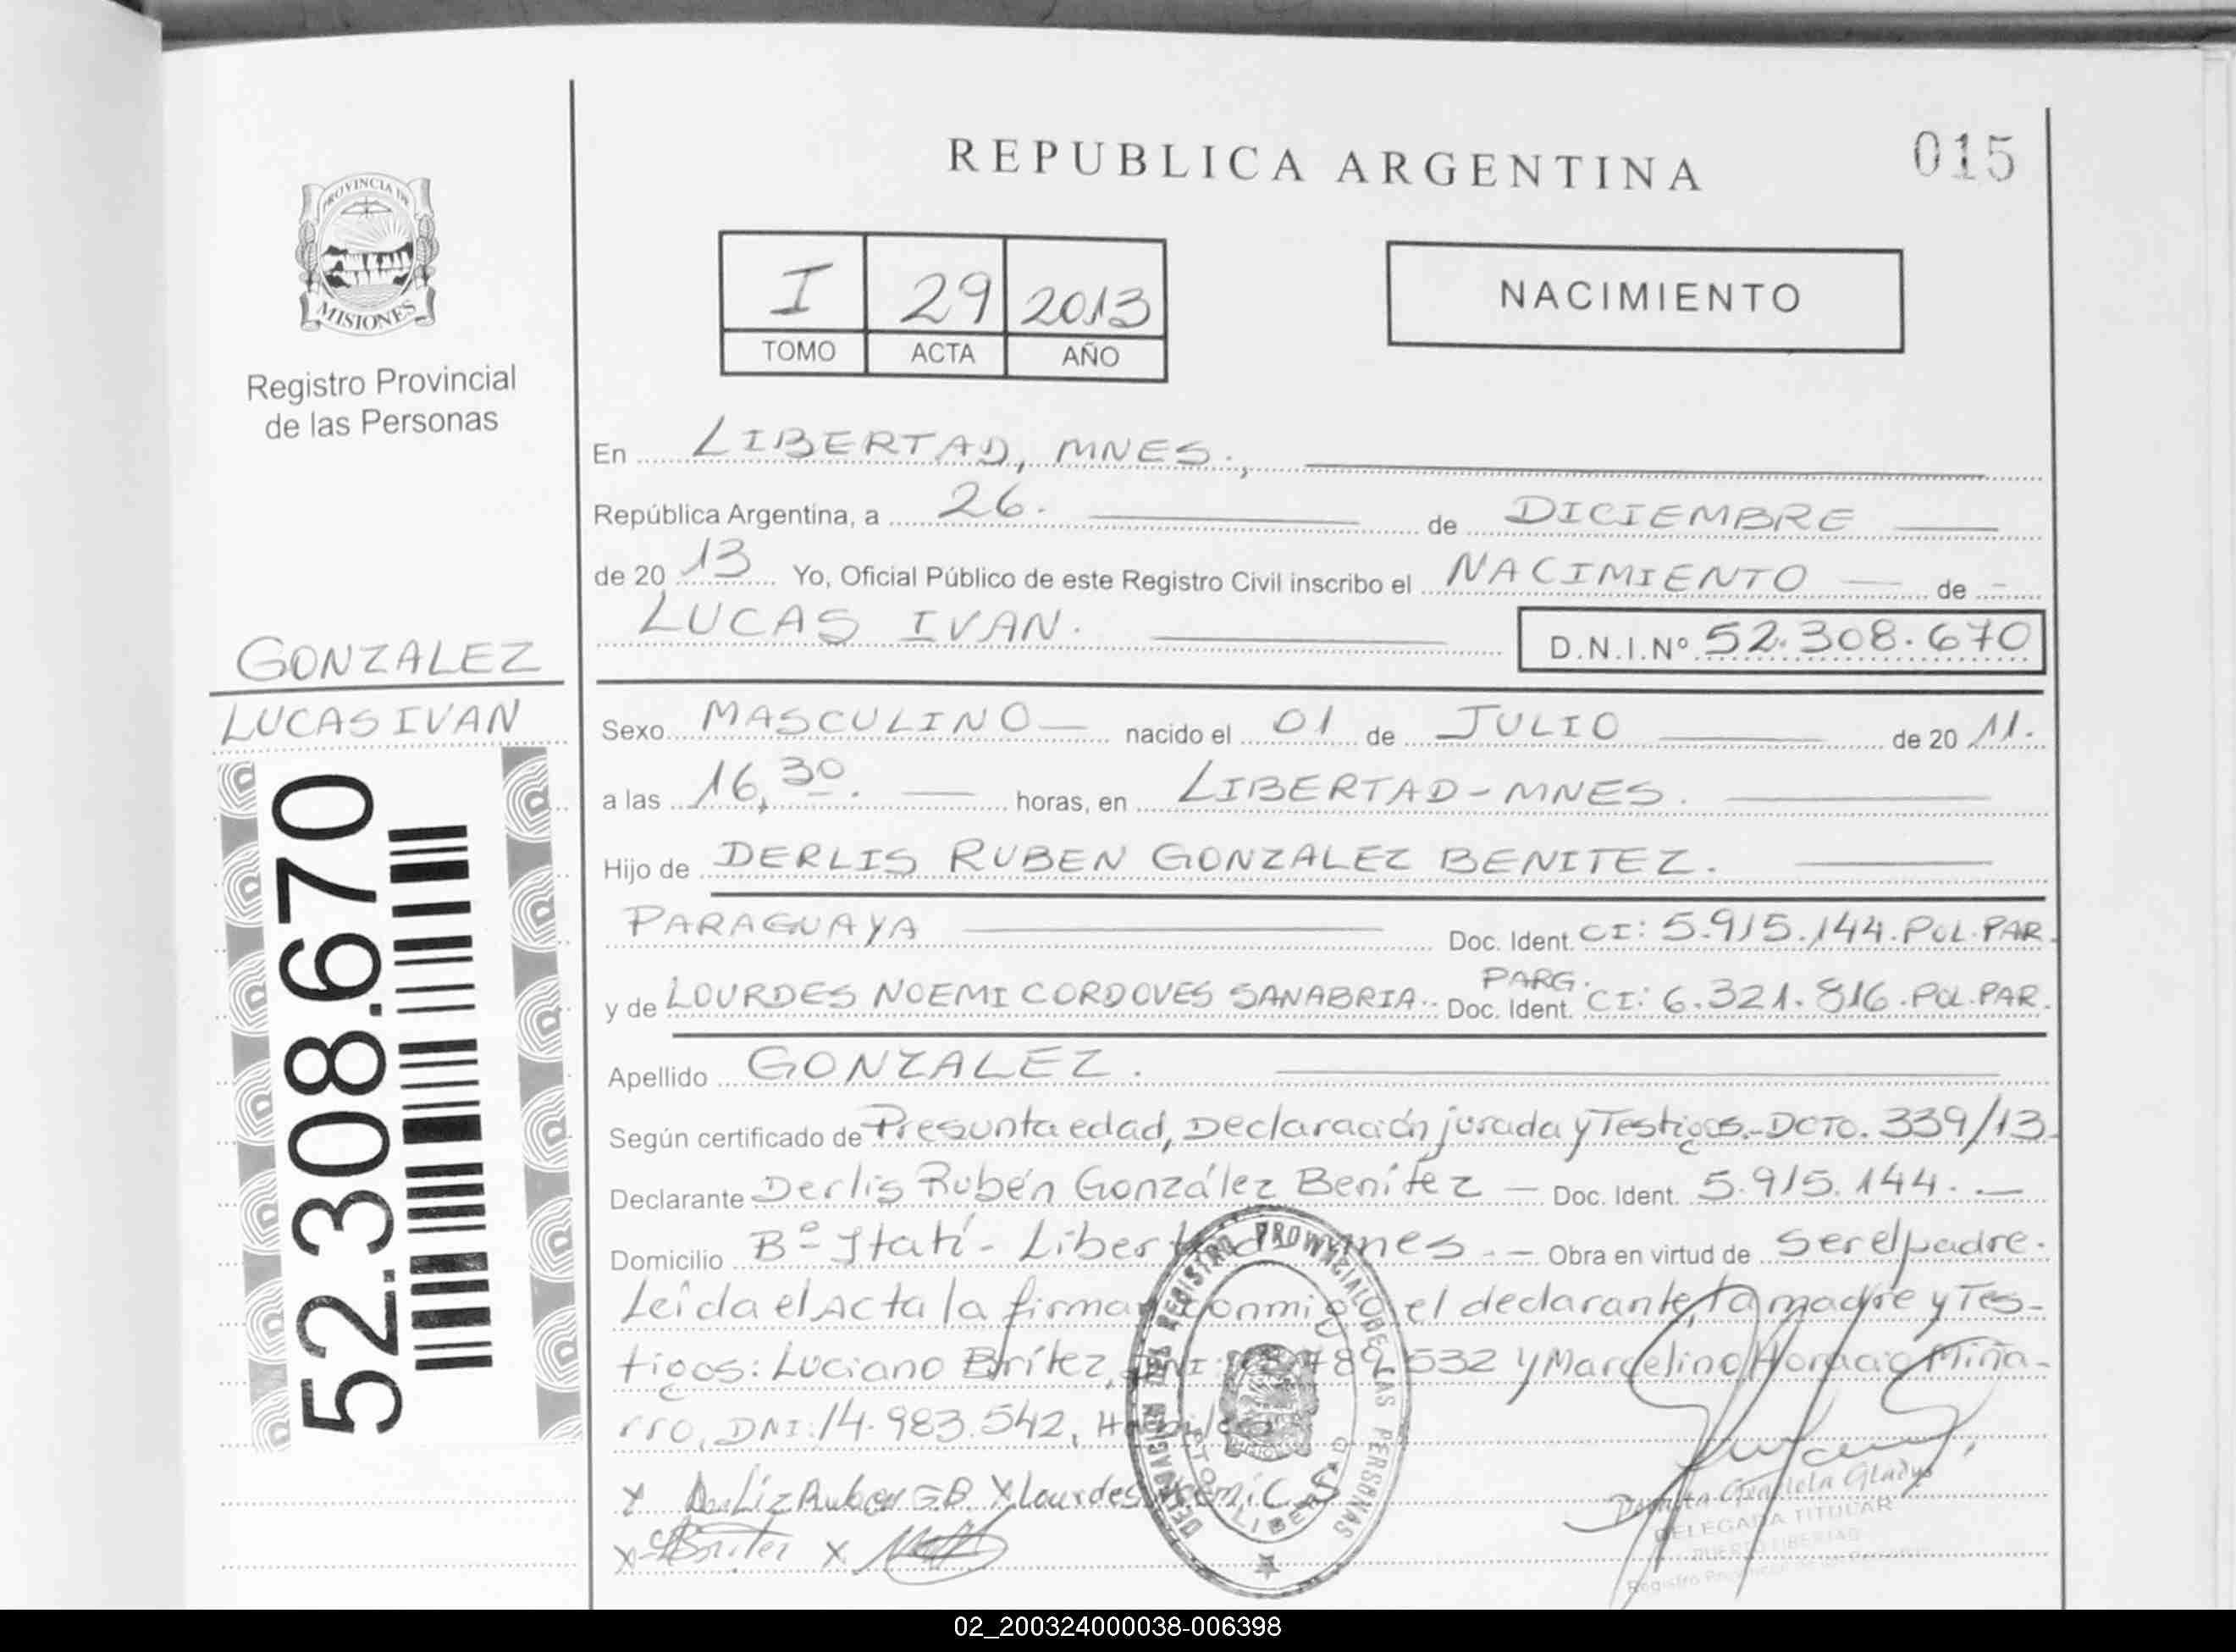 REPUBLICA ARGENTINA
015
PROVINCIA DE
MISIONES
Registro Provincial
de las Personas
I 29 2013
TOMO ACTA AÑO
NACIMIENTO
En LIBERTAD, MNES.,
República Argentina, a 26. de DICIEMBRE
de 20 13 Yo, Oficial Público de este Registro Civil inscribo el NACIMIENTO de
LUCAS IVAN. D.N.I.Nº 52.308.670
GONZALEZ
LUCAS IVAN
52.308.670
Sexo MASCULINO nacido el 01 de JULIO de 20 11.
a las 16,30. horas, en LIBERTAD-MNES.
Hijo de DERLIS RUBEN GONZALEZ BENITEZ.
PARAGUAYA Doc. Ident. CI: 5.915.144.POL.PAR.
PARG.
y de LOURDES NOEMI CORDOVES SANABRIA.- Doc. Ident. CI: 6.321.816.POL.PAR.
Apellido GONZALEZ.
Según certificado de Presunta edad, Declaración jurada y Testigos.-DCTO. 339/13.
Declarante Derlis Rubén González Benítez — Doc. Ident. 5.915.144. —
Domicilio Bº Itatí - Libertad Mnes. - Obra en virtud de ser el padre.
Leída el Acta la firman conmigo el declarante, la madre y Tes-
tigos: Luciano Brítez, 532 y Marcelino Horacio Miña-
rro, DNI: 14.983.542, Hábiles
X Derliz Ruben G B X Lourdes Noemi C. S
X Britez X
DELEGACION DEL REGISTRO PROVINCIAL DE LAS PERSONAS
PTO. LIBERTAD
Graciela Gladys
DELEGADA TITULAR
PUERTO LIBERTAD
Registro Provincial de las Personas
02_200324000038-006398